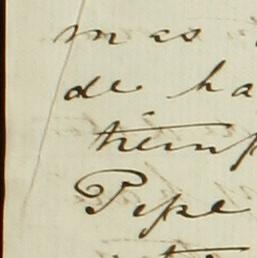 mas
de ha
temp
Pepe